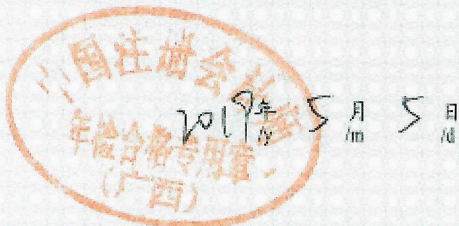 中国注册会计师
年检合格专用章
(广西)
2019年 5月 5日
/y /m /d